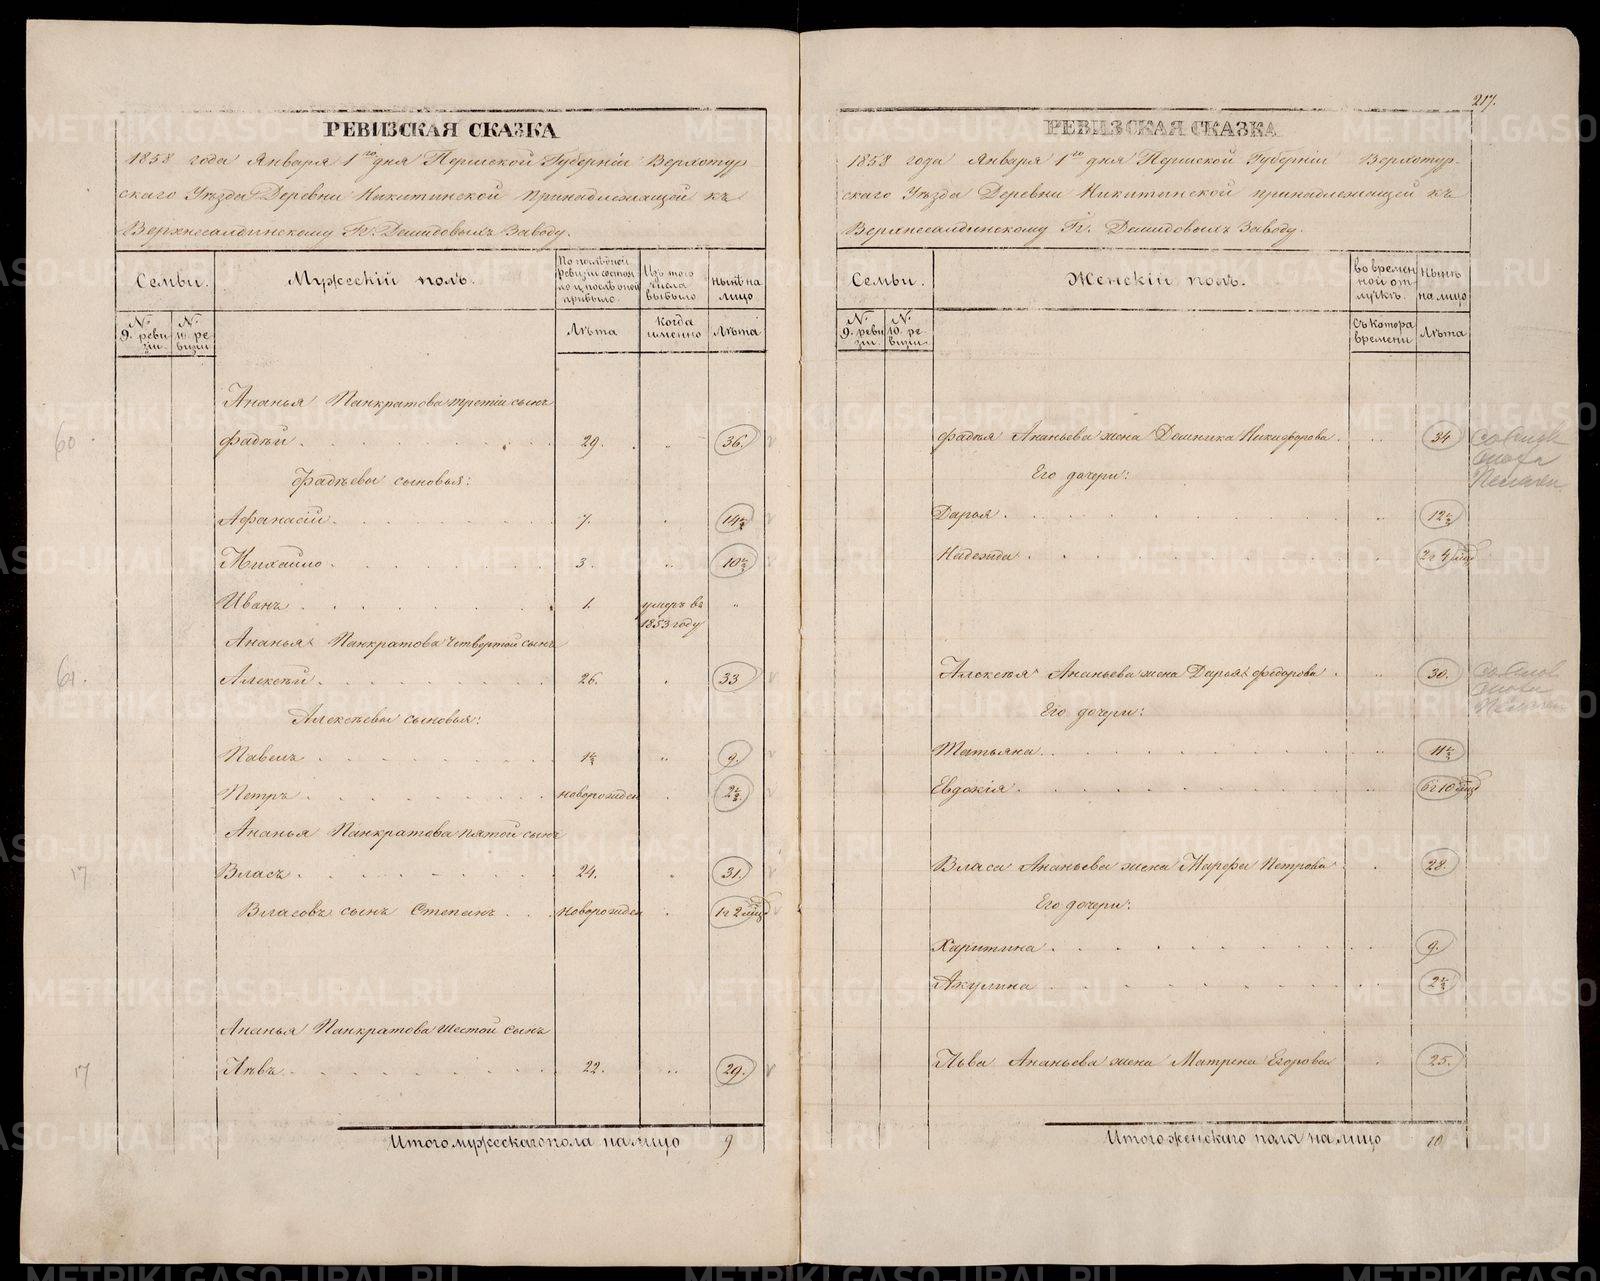 РЕВИЗСКАЯ СКАЗКА
1858 года Января 1го дня Пермской Губерніи Верхотур-
скаго Уѣзда Деревни Никитинской принадлежащей къ
Верхнесалдинскому Гг. Демидовыхъ Заводу.
Семьи.
Мужескій полъ.
По послѣдней ревизіи состояло и послѣ оной прибыло.
Изъ того числа выбыло
Нынѣ на лицо
№ 9. ревизіи.
№ 10. ревизіи
Лѣта
Когда именно
Лѣта
Ананья Панкратова третій сынъ
60.
Фадѣй 29. " 36.
Фадѣевы сыновья:
Афанасій 7. 14½
Михайло 3. " 10½
Иванъ 1. умеръ въ 1853 году "
Ананья Панкратова четвертой сынъ
61.
Алексѣй 26. 33
Алексѣевы сыновья:
Павелъ 1½ " 9.
Петръ новорожден 2½
Ананья Панкратова пятой сынъ
17
Власъ 24. " 31.
Власовъ сынъ Степанъ новорожден 1г 2 мѣс
Ананья Панкратова шестой сынъ
17
Лѣвъ 22. " 29.
Итого мужескаго пола на лицо 9
217.
РЕВИЗСКАЯ СКАЗКА
1858 года Января 1го дня Пермской Губерніи Верхотур-
скаго Уѣзда Деревни Никитинской принадлежащей къ
Верхнесалдинскому Гг. Демидовыхъ Заводу.
Семьи.
Женскій полъ.
Во временной отлучкѣ.
Нынѣ на лицо
№ 9. ревизіи.
№ 10. ревизіи.
Съ котора времени
Лѣта
Фадѣя Ананьева жена Домника Никифорова 34
Его дочери:
Дарья 12½
Надежда 2г 4 мѣс
Алексѣя Ананьева жена Дарья Федорова 30.
Его дочери:
Татьяна 11½
Евдокія 6г 10 мѣс
Власа Ананьева жена Марфа Петрова 28.
Его дочери:
Харитина 9.
Акулина 2½
Льва Ананьева жена Матрена Егорова 25.
Итого женскаго пола на лицо 10
METRIKI.GASO-URAL.RU